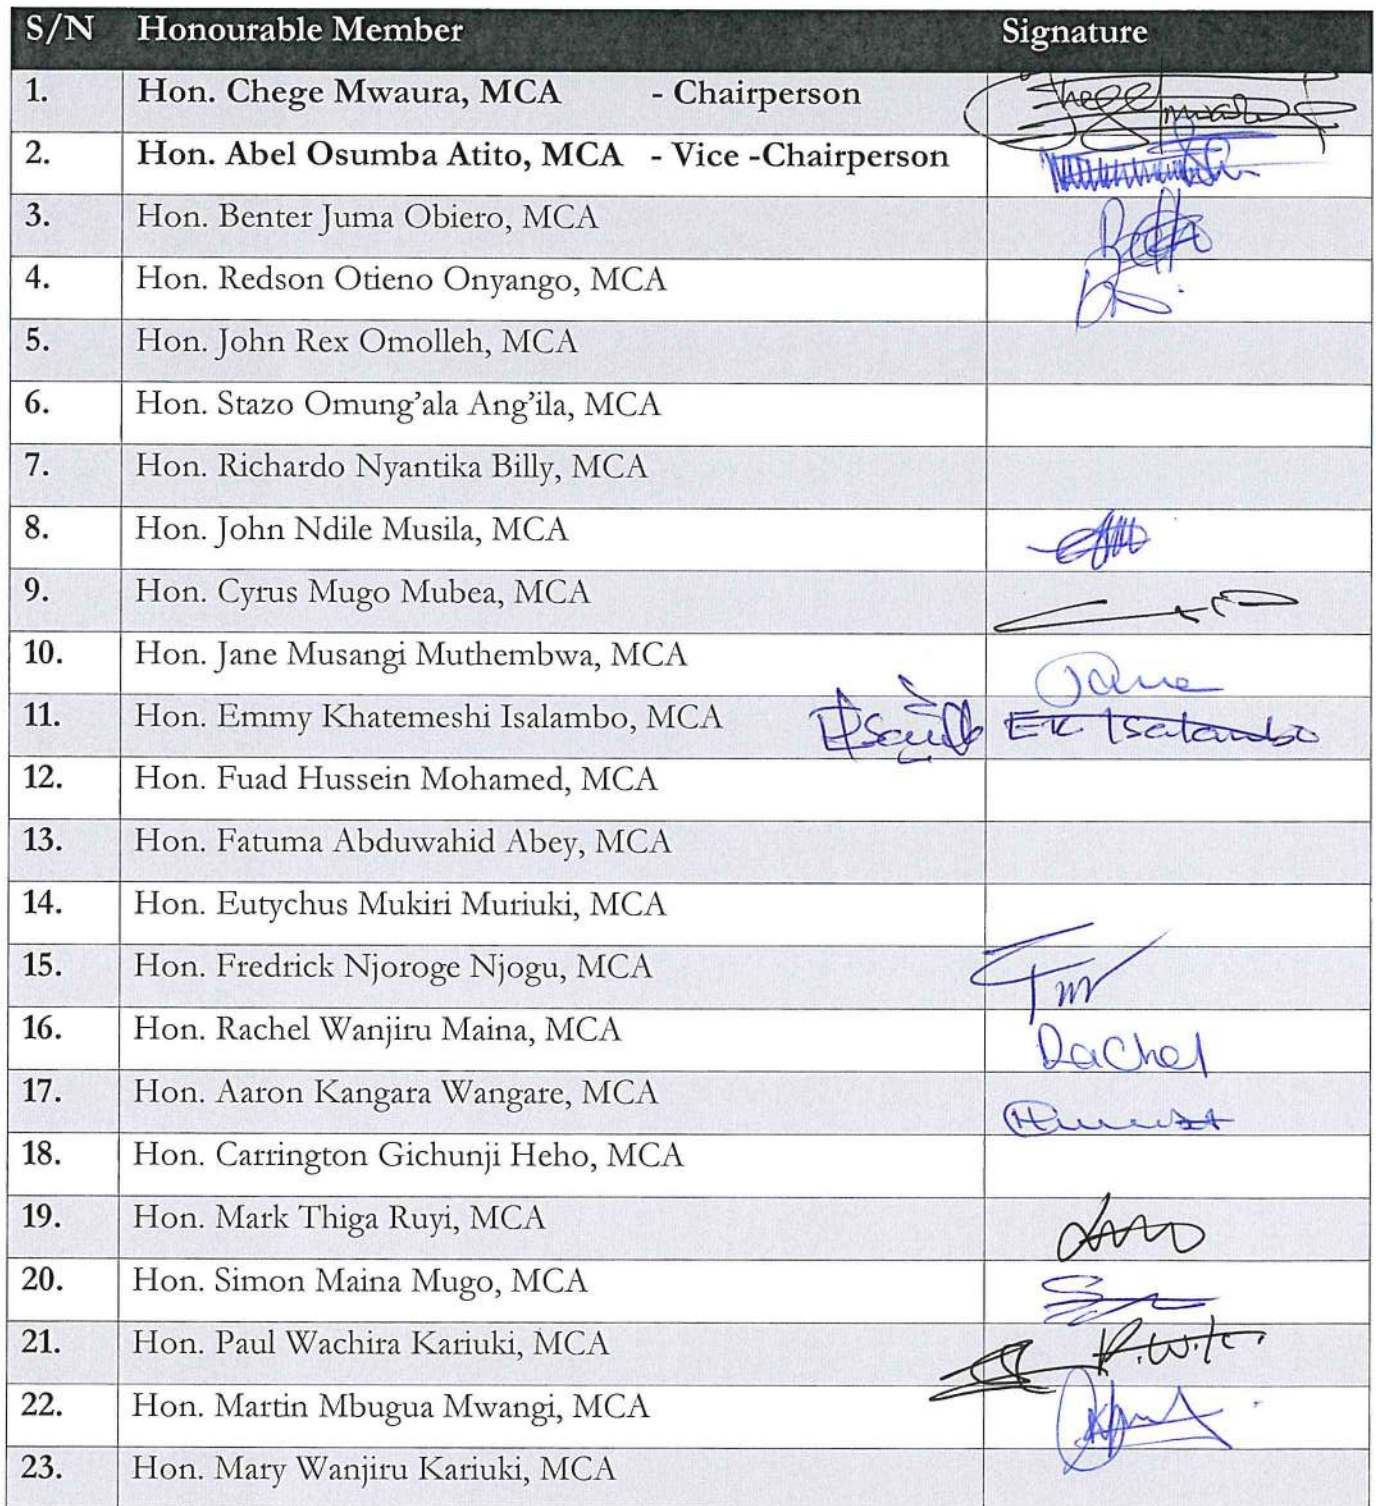 S/N Honourable Member Signature
1. Hon. Chege Mwaura, MCA - Chairperson Chege Mwaura
2. Hon. Abel Osumba Atito, MCA - Vice -Chairperson
3. Hon. Benter Juma Obiero, MCA
4. Hon. Redson Otieno Onyango, MCA
5. Hon. John Rex Omolleh, MCA
6. Hon. Stazo Omung’ala Ang’ila, MCA
7. Hon. Richardo Nyantika Billy, MCA
8. Hon. John Ndile Musila, MCA
9. Hon. Cyrus Mugo Mubea, MCA
10. Hon. Jane Musangi Muthembwa, MCA Jane
11. Hon. Emmy Khatemeshi Isalambo, MCA EK Isalambo
12. Hon. Fuad Hussein Mohamed, MCA
13. Hon. Fatuma Abduwahid Abey, MCA
14. Hon. Eutychus Mukiri Muriuki, MCA
15. Hon. Fredrick Njoroge Njogu, MCA
16. Hon. Rachel Wanjiru Maina, MCA Rachel
17. Hon. Aaron Kangara Wangare, MCA
18. Hon. Carrington Gichunji Heho, MCA
19. Hon. Mark Thiga Ruyi, MCA
20. Hon. Simon Maina Mugo, MCA
21. Hon. Paul Wachira Kariuki, MCA P.W.K.
22. Hon. Martin Mbugua Mwangi, MCA
23. Hon. Mary Wanjiru Kariuki, MCA